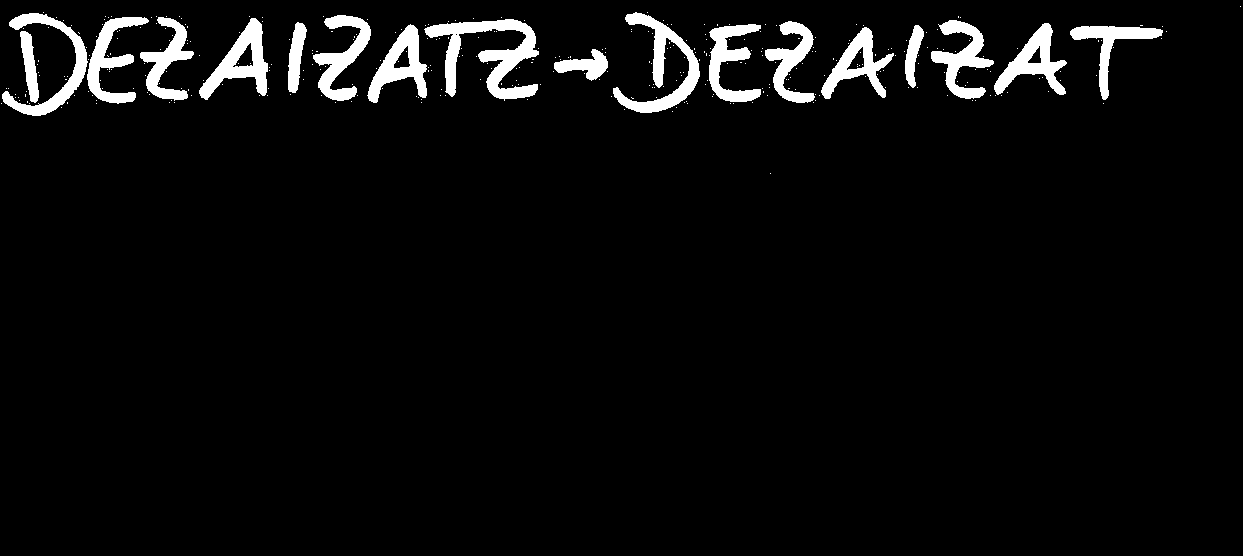 DEZAIZATZ → DEZAIZAT